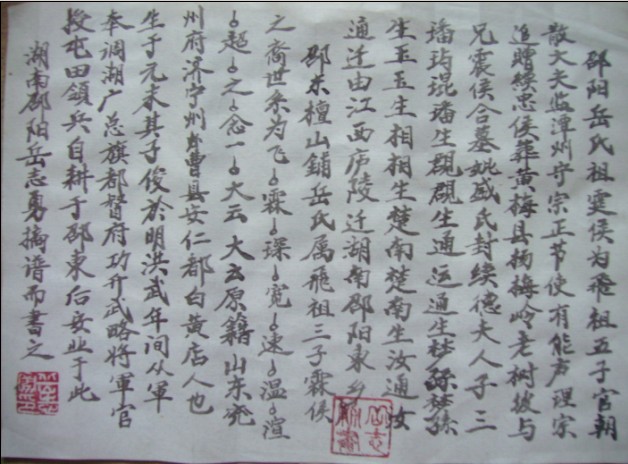 邵阳岳氏祖霆侯为飞祖五子官朝
散大夫监潭州守宗正节使有能声理宗
追赠续忠侯葬黄梅县杨梅岭老树坡与
兄震侯合墓妣戚氏封续德夫人子三
璠玙琨璠生覞覞生通运通生
生玉玉生相相生楚南楚南生汝通汝
通迁由江西庐陵迁湖南邵阳东乡
邵东檀山铺岳氏属飞祖三子霖侯
之裔世系为飞霖琛宽速温渲
超之念一大云大云原籍山东兖
州府济宁州曹县安仁都白黄店人也
生于元末其子俊於明洪武年间从军
奉调湖广总旗都督府功升武略将军官
授屯田领兵自耕于邵东后安业于此
湖南邵阳岳志勇摘谱而书之